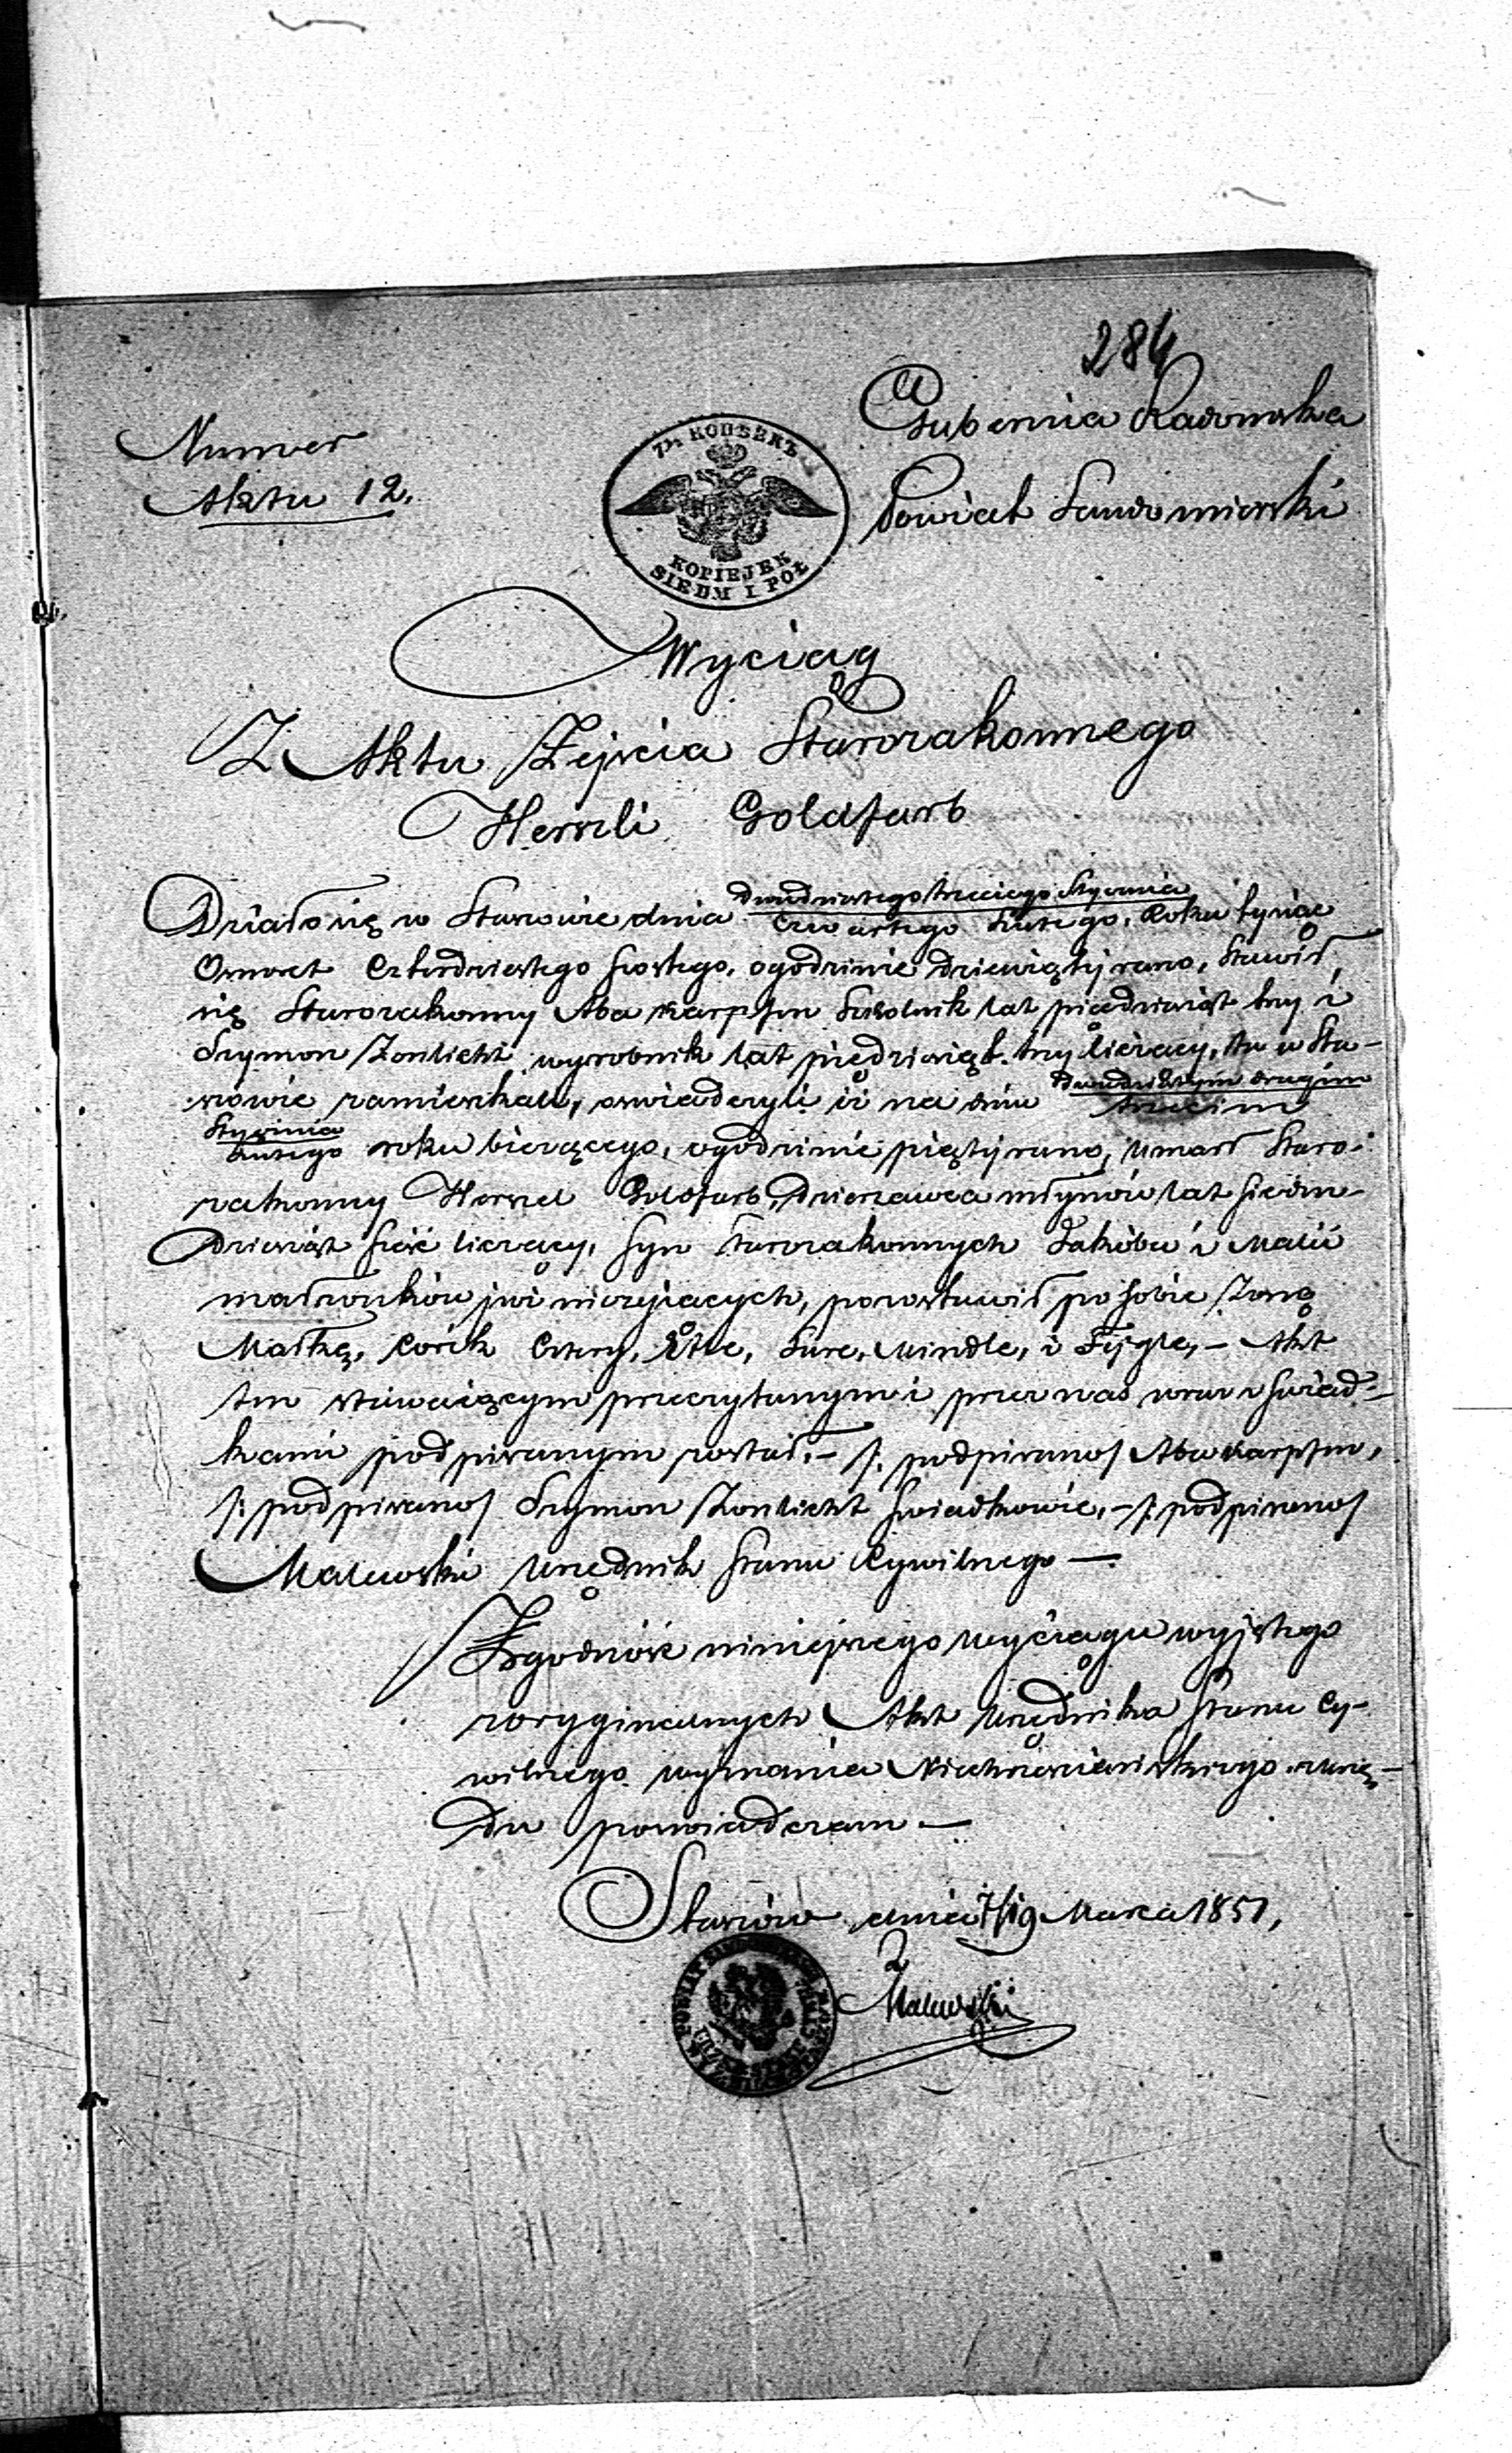 284
Gubernia Radomska
Numer
Aktu 12.
7½ КОПѢЕКЪ
KOPIEJEK
SIEDM I PÓŁ
Powiat Sandomierski
Wyciąg
Z Aktu Zejścia Starozakonnego
Herszli Goldfarb
Działo się w Staszowie dnia dwudziestego trzeciego Stycznia
czwartego Lutego, Roku tysiąc
Osmset Czterdziestego szostego, o godzinie dziewiątej rano, Stawił
się Starozakonny Aba Karpfen Szkolnik lat piędziesiąt trzy i
Szymon Zonlicht wyrobnik lat piędziesiąt trzy liczący, tu w Sta-
szowie zamieszkali, oswiadczyli iż na dniu dwudziestym drugim
trzecim
Stycznia
Lutego roku bieżącego, o godzinie piątej rano, umarł Staro-
zakonny Herszel Goldfarb, dzierzawca młynów lat siedm-
dziesiąt sześć liczący, syn Starozakonnych Jakóba i Malii
małżonków już nieżyjących, pozostawił po sobie żonę
Małkę, Córek Cztery, Etle, Surę, Mindlę, i Fejglę, – Akt
ten stawaiącym przeczytanym i przez nas wraz z swiad-
kami podpisanym został. – /: podpisano/ Aba Karpfen,
/: podpisano/ Szymon Zonlicht swiadkowie, – /: podpisano/
Malewski Urzędnik Stanu Cywilnego —
Zgodność niniejszego wyciągu wyjętego
z oryginalnych Akt Urzędnika Stanu Cy-
wilnego wyznania Niechrześciańskiego z urzę-
du poswiadczam —
Staszów dnia 7/19 Marca 1851,
Malewski